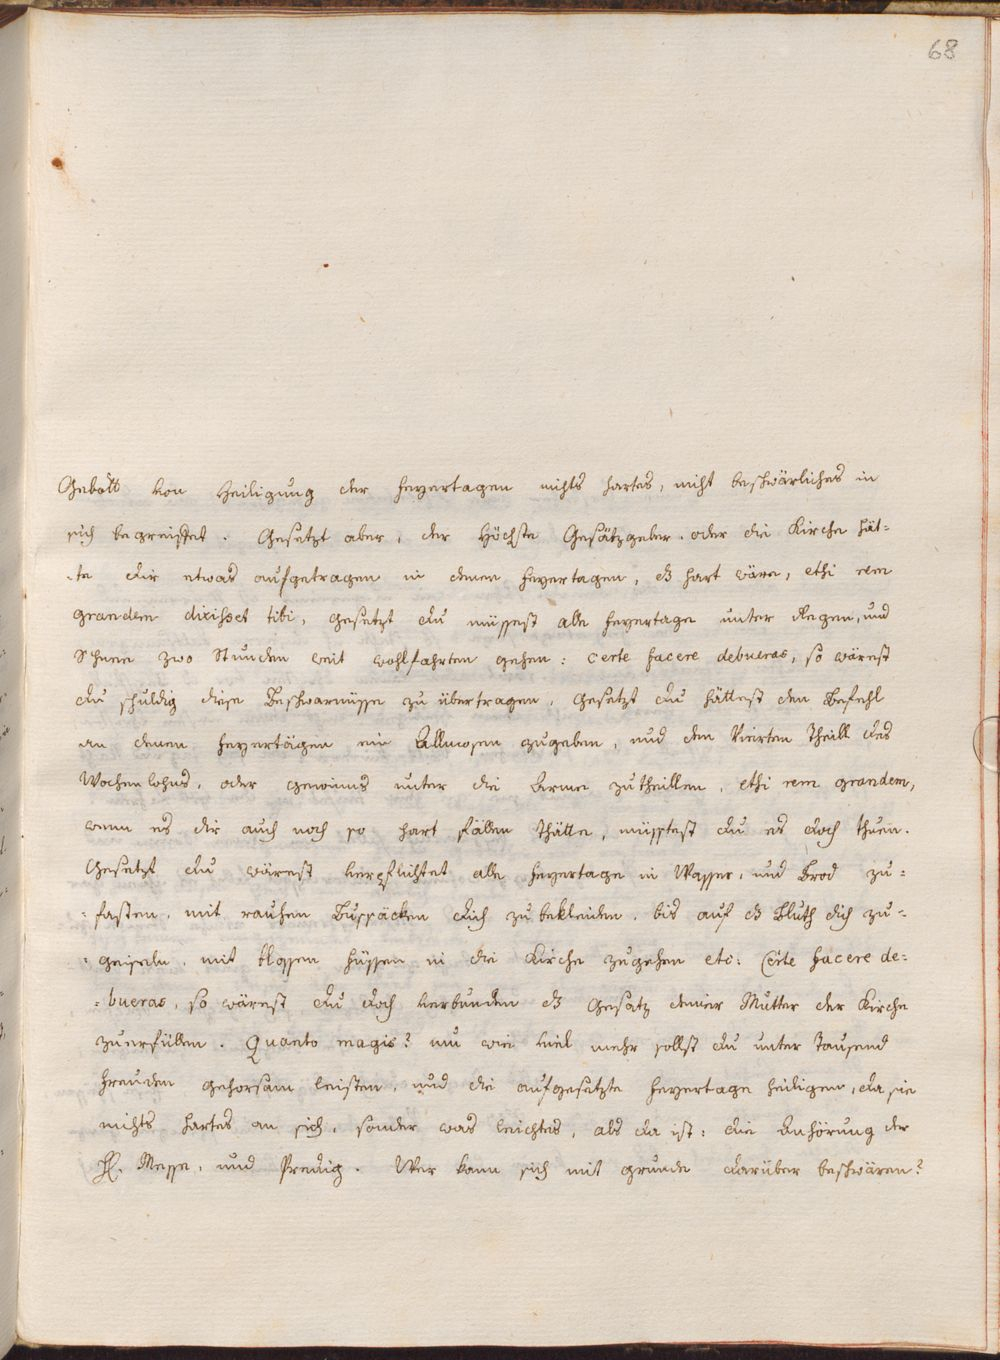 68
Gebott von Heiligung der Feyertagen nichts hartes, nicht beschwärliches in
sich begreiffet. Gesetzt aber, der Höchste Gesätzgeber, oder die Kirche hät-
-te dir etwas aufgetragen in denen Feyertagen, dß hart wäre, etsi rem
grandem dixisset tibi, gesetzt du müssest alle Feyertage unter Regen, und
Schnee zwo Stunden weit wohlfahrten gehen: certe facere debueras, so wärest
du schuldig diese Beschwarnüsse zu übertragen. Gesetzt du hättest den Befehl
an denen Feyertägen ein Allmosen zugeben, und den Vierten Theill des
Wochenlohns, oder gewinns unter die Arme zutheillen, etsi rem grandem,
wenn es dir auch noch so hart fallen thätte, müsstest du es doch thuen.
Gesetzt du wärest verpflichtet alle Feyertage in Wasser, und Brod zu-
-fasten, mit rauhen Bußsäcken dich zu bekleiden, bis auf dß Bluth dich zu-
-geislen, mit blossen Füssen in die Kirche zugehen etc: Certe facere de-
-bueras, so wärest du doch verbunden dß Gesatz deiner Mutter der Kirche
zuerfüllen. Quanto magis? nu wie viel mehr sollst du unter Tausend
Freuden gehorsam leisten, und die aufgesetzte Feyertage heiligen, da sie
nichts hartes an sich, sonder was leichtes, als da ist: die Anhörung der
H. Messe, und Predig. Wer kann sich mit grunde darüber beschwären?